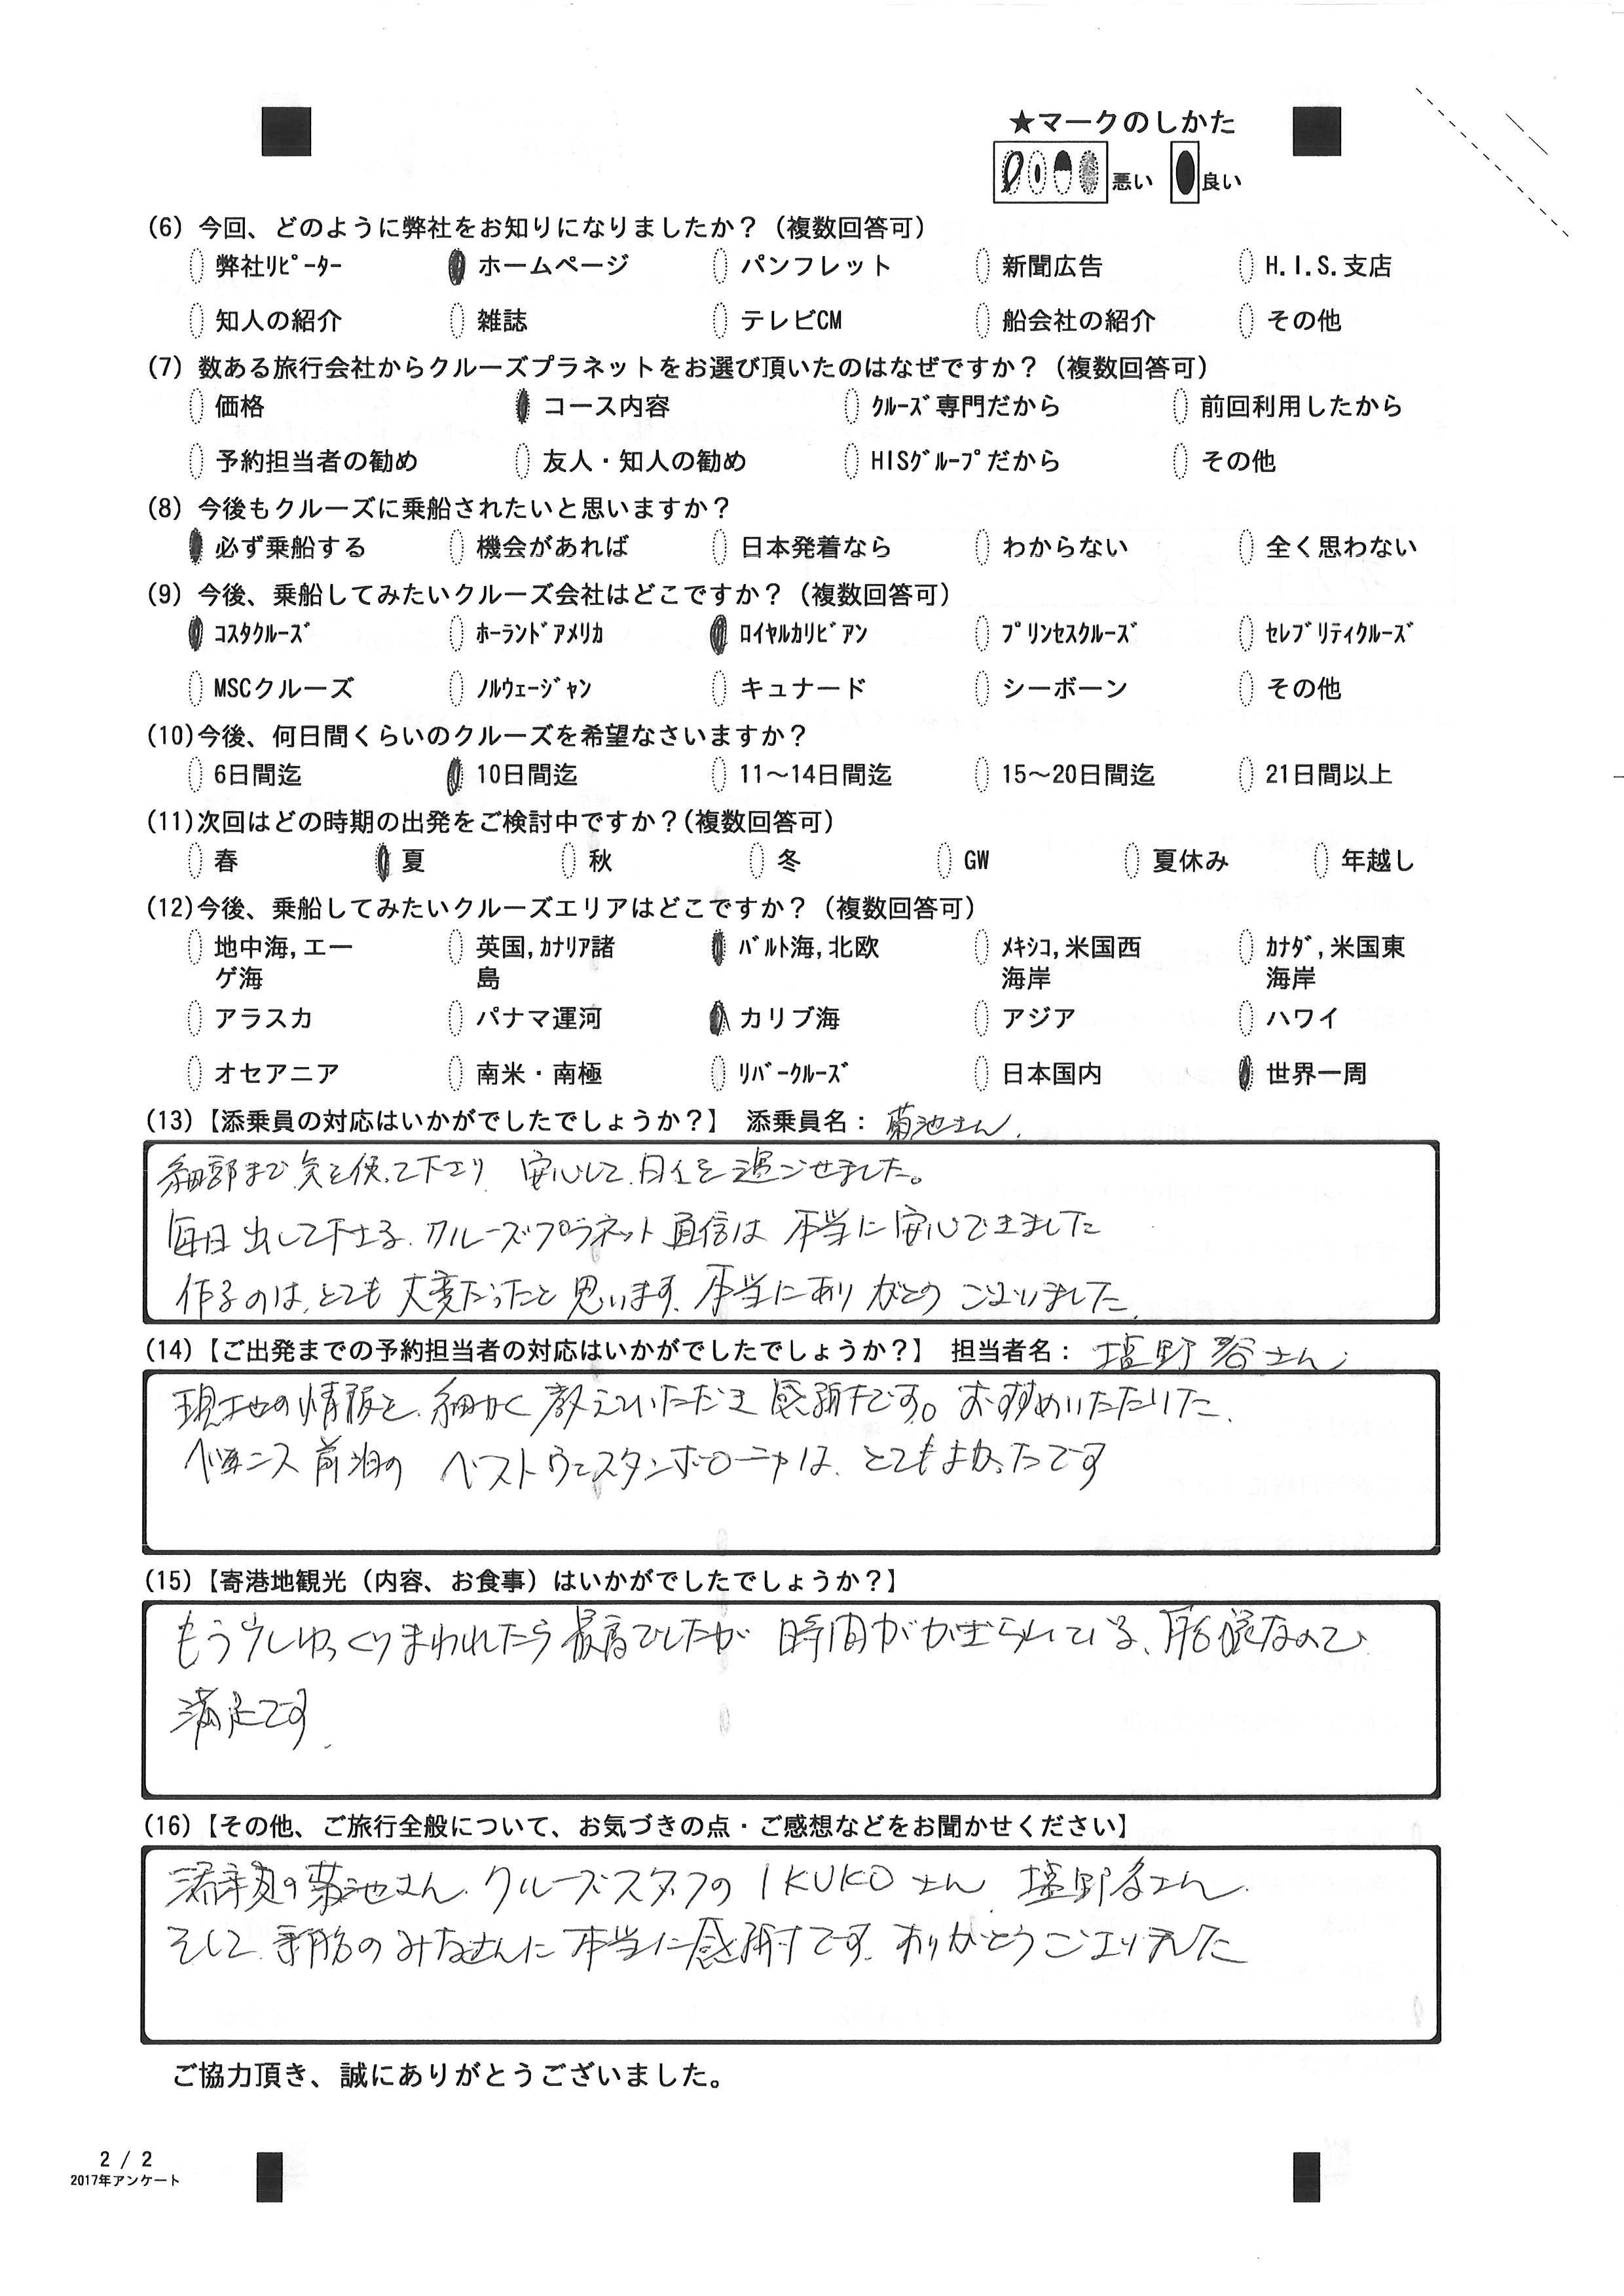 ★マークのしかた
悪い 良い
(6) 今回、どのように弊社をお知りになりましたか？（複数回答可）
弊社ﾘﾋﾟｰﾀｰ ホームページ パンフレット 新聞広告 H.I.S.支店
知人の紹介 雑誌 テレビCM 船会社の紹介 その他
(7) 数ある旅行会社からクルーズプラネットをお選び頂いたのはなぜですか？（複数回答可）
価格 コース内容 ｸﾙｰｽﾞ専門だから 前回利用したから
予約担当者の勧め 友人・知人の勧め HISｸﾞﾙｰﾌﾟだから その他
(8) 今後もクルーズに乗船されたいと思いますか？
必ず乗船する 機会があれば 日本発着なら わからない 全く思わない
(9) 今後、乗船してみたいクルーズ会社はどこですか？（複数回答可）
ｺｽﾀｸﾙｰｽﾞ ﾎｰﾗﾝﾄﾞｱﾒﾘｶ ﾛｲﾔﾙｶﾘﾋﾞｱﾝ ﾌﾟﾘﾝｾｽｸﾙｰｽﾞ ｾﾚﾌﾞﾘﾃｨｸﾙｰｽﾞ
MSCクルーズ ﾉﾙｳｪｰｼﾞｬﾝ キュナード シーボーン その他
(10)今後、何日間くらいのクルーズを希望なさいますか？
6日間迄 10日間迄 11～14日間迄 15～20日間迄 21日間以上
(11)次回はどの時期の出発をご検討中ですか？(複数回答可）
春 夏 秋 冬 GW 夏休み 年越し
(12)今後、乗船してみたいクルーズエリアはどこですか？（複数回答可）
地中海,エー 英国,ｶﾅﾘｱ諸 ﾊﾞﾙﾄ海,北欧 ﾒｷｼｺ,米国西 ｶﾅﾀﾞ,米国東
ゲ海 島 海岸 海岸
アラスカ パナマ運河 カリブ海 アジア ハワイ
オセアニア 南米・南極 ﾘﾊﾞｰｸﾙｰｽﾞ 日本国内 世界一周
(13)【添乗員の対応はいかがでしたでしょうか？】 添乗員名： 菊池さん.
細部まで気を使って下さり 安心して、日々を過ごせました。
毎日出して下さる、クルーズプラネット通信は 本当に安心できました
作るのは、とても大変だったと思います、本当にありがとう ございました、
(14)【ご出発までの予約担当者の対応はいかがでしたでしょうか？】 担当者名： 塩野谷さん
現地の情報を、細かく教えていただき感謝です。おすすめいただいた、
ベニス前泊の ベストウェスタンボローニャは、とてもよかったです
(15)【寄港地観光（内容、お食事）はいかがでしたでしょうか？】
もう少しゆっくりまわれたら最高でしたが 時間がかぎられている、船旅なので、
満足です.
(16)【その他、ご旅行全般について、お気づきの点・ご感想などをお聞かせください】
添乗員の菊池さん、クルーズスタッフの IKUKO さん、塩野谷さん、
そして、乗船のみなさんに 本当に感謝です、ありがとうございました
ご協力頂き、誠にありがとうございました。
2 / 2
2017年アンケート